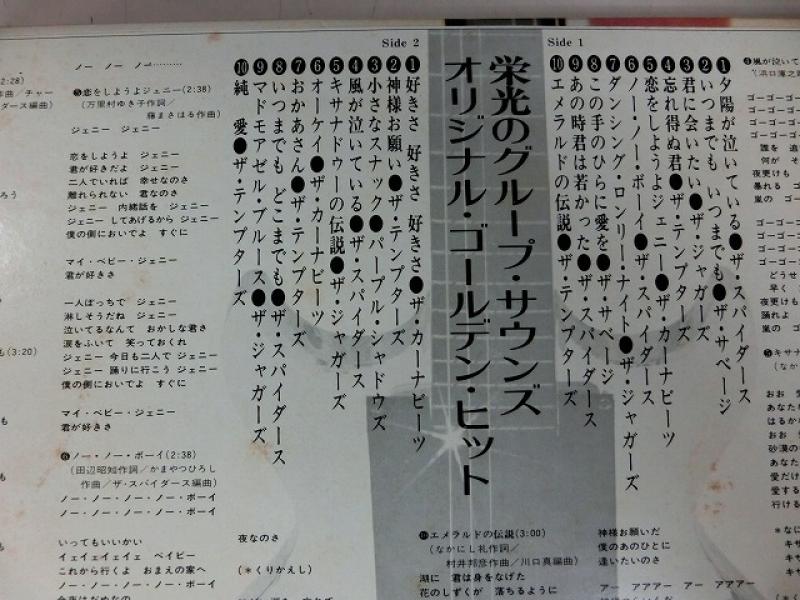 栄光のグループ・サウンズ
オリジナル・ゴールデン・ヒット
Side 1
❶夕陽が泣いている●ザ・スパイダース
❷いつまでも いつまでも●ザ・サベージ
❸君に会いたい●ザ・ジャガーズ
❹忘れ得ぬ君●ザ・テンプターズ
❺恋をしようよジェニー●ザ・カーナビーツ
❻ノー・ノー・ボーイ●ザ・スパイダース
❼ダンシング・ロンリー・ナイト●ザ・ジャガーズ
❽この手のひらに愛を●ザ・サベージ
❾あの時君は若かった●ザ・スパイダース
❿エメラルドの伝説●ザ・テンプターズ
Side 2
❶好きさ 好きさ 好きさ●ザ・カーナビーツ
❷神様お願い●ザ・テンプターズ
❸小さなスナック●パープル・シャドウズ
❹風が泣いている●ザ・スパイダース
❺キサナドゥーの伝説●ザ・ジャガーズ
❻オーケイ●ザ・カーナビーツ
❼おかあさん●ザ・テンプターズ
❽いつまでも どこまでも●ザ・スパイダース
❾マドモアゼル・ブルース●ザ・ジャガーズ
❿純 愛●ザ・テンプターズ
2:28)
作曲/チャー
ダース編曲)
ろう
も(3:20)
ノー ノー ノー………
❺恋をしようよジェニー(2:38)
(万里村ゆき子作詞/
藤まさはる作曲)
ジェニー ジェニー
恋をしようよ ジェニー
君が好きだよ ジェニー
二人でいれば 幸せなのさ
離れられない 君なのさ
ジェニー 内緒話を ジェニー
ジェニー してあげるから ジェニー
僕の側においでよ すぐに
マイ・ベビー・ジェニー
君が好きさ
一人ぼっちで ジェニー
淋しそうだね ジェニー
泣いてるなんて おかしな君さ
涙をふいて 笑っておくれ
ジェニー 今日も二人で ジェニー
ジェニー 踊りに行こう ジェニー
僕の側においでよ すぐに
マイ・ベビー・ジェニー
君が好きさ
❻ノー・ノー・ボーイ(2:38)
(田辺昭知作詞/かまやつひろし
作曲/ザ・スパイダース編曲)
ノー・ノー・ノー・ノー・ボーイ
ノー・ノー・ノー・ノー・ボーイ
いってもいいかい
イェイェイェイェ ベイビー
これから行くよ おまえの家へ
ノー・ノー・ノー・ノー・ボーイ
夜なのさ
(*くりかえし)
❿エメラルドの伝説(3:00)
(なかにし礼作詞/
村井邦彦作曲/川口真編曲)
湖に 君は身をなげた
花のしずくが 落ちるように
神様お願いだ
僕のあのひとに
逢いたいのさ
アー アアアー アー アアアー
❹風が泣いて
(浜口庫之
ゴーゴーゴー
ゴーゴーゴー
ゴーゴーゴー
ゴーゴーゴー
誰を 追
何が そ
夜更けも
暴れる ゴ
嵐の ゴー
ゴーゴーゴー
ゴーゴーゴー
ゴーゴーゴー
ゴーゴーゴー
どうせ
早く
夜更けも
踊れよ
嵐の ゴ
❺キサナ
(なか
おお
あなた
はるか
おお
砂漠の
あなた
愛だけ
愛する
行ける
*なに
キサ